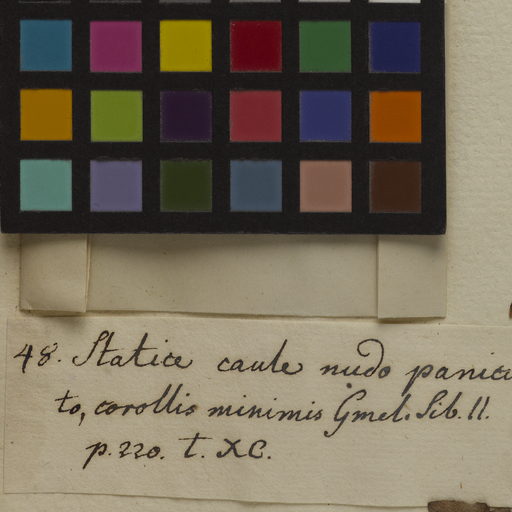 48. Statice caule nudo panicu
to, corollis minimis Gmel. Sib. II.
p. 220. t. XC.